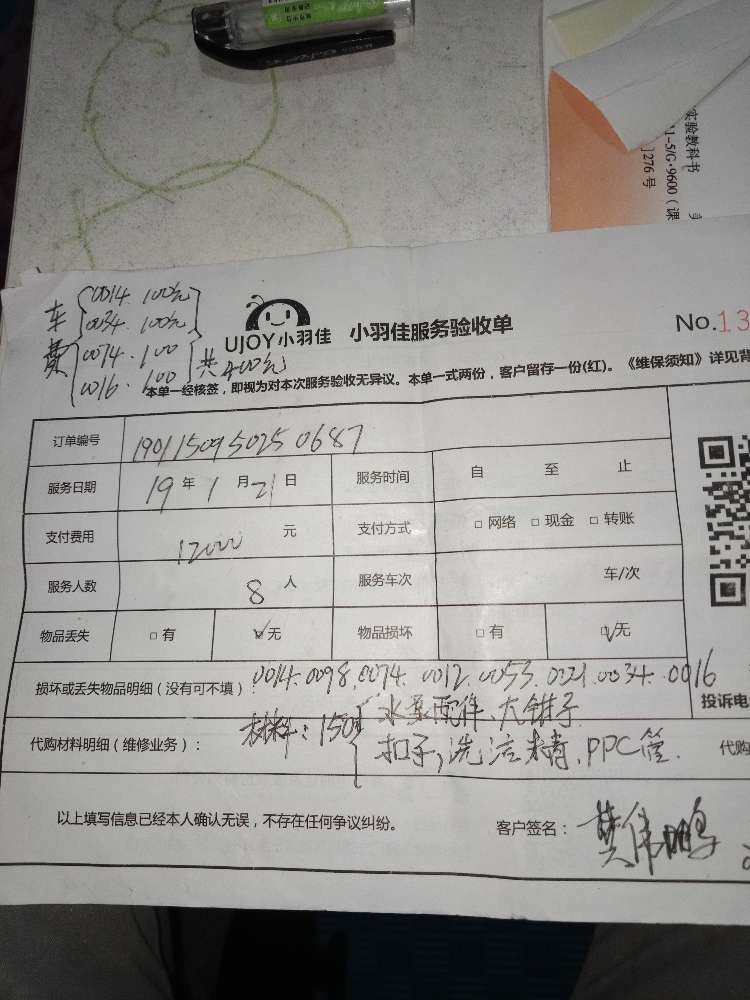 实验教科书
1-5/G·9600（课
]276号
车费
0014. 100元
0034. 100元
0074. 100
0016. 100
共400元
UJOY小羽佳 小羽佳服务验收单
No.13
本单一经核签，即视为对本次服务验收无异议。本单一式两份，客户留存一份(红)。《维保须知》详见背
订单编号 1901150950250687
服务日期 19年1月21日 服务时间 自 至 止
支付费用 12000 元 支付方式 □网络 □现金 □转账
服务人数 8人 服务车次 车/次
物品丢失 □有 ☑无 物品损坏 □有 ☑无
损坏或丢失物品明细（没有可不填）： 0014.0098.0074.0012.0053.0021.0034.0016
投诉电
代购材料明细（维修业务）： 材料：150 水泵配件、大钳子
扣子，洗洁精、PPC管.
代购
以上填写信息已经本人确认无误，不存在任何争议纠纷。 客户签名： 樊伟鹏